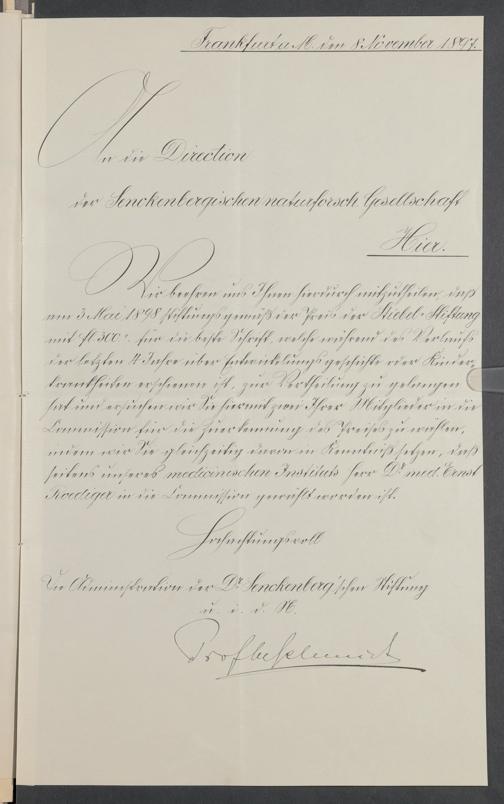 Frankfurt a. M. den 8. November 1897.
An die Direction
der Senckenbergischen naturforsch. Gesellschaft
Hier.
Wir beehren uns Ihnen hierdurch mitzutheilen, daß
am 3 Mai 1898 stiftungsgemäß der Preis der Stiebel-Stiftung
mit fl 300.- für die beste Schrift, welche während des Verlaufs
der letzten 4 Jahre über Entwickelungsgeschichte oder Kinder-
krankheiten erschienen ist, zur Vertheilung zu gelangen
hat und ersuchen wir Sie hiermit zwei Ihrer Mitglieder in die
Commission für die Zuerkennung des Preises zu wählen,
indem wir Sie gleichzeitig davon in Kenntniß setzen, daß
seitens unseres medicinischen Instituts Herr Dr. med. Ernst
Roediger in die Commission gewählt worden ist.
Hochachtungsvoll
Die Administration der Dr. Senckenberg'schen Stiftung
u. i. d. N.
Prof